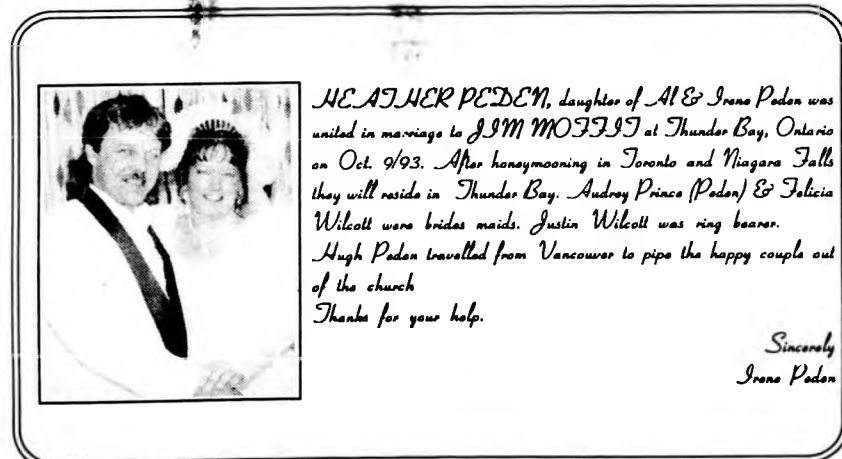 HEATHER PEDEN, daughter of Al & Irene Peden was
united in marriage to JIM MOFFIT at Thunder Bay, Ontario
on Oct. 9/93. After honeymooning in Toronto and Niagara Falls
they will reside in Thunder Bay. Audrey Prince (Peden) & Felicia
Wilcott were brides maids. Justin Wilcott was ring bearer.
Hugh Peden travelled from Vancouver to pipe the happy couple out
of the church
Thanks for your help.
Sincerely
Irene Peden